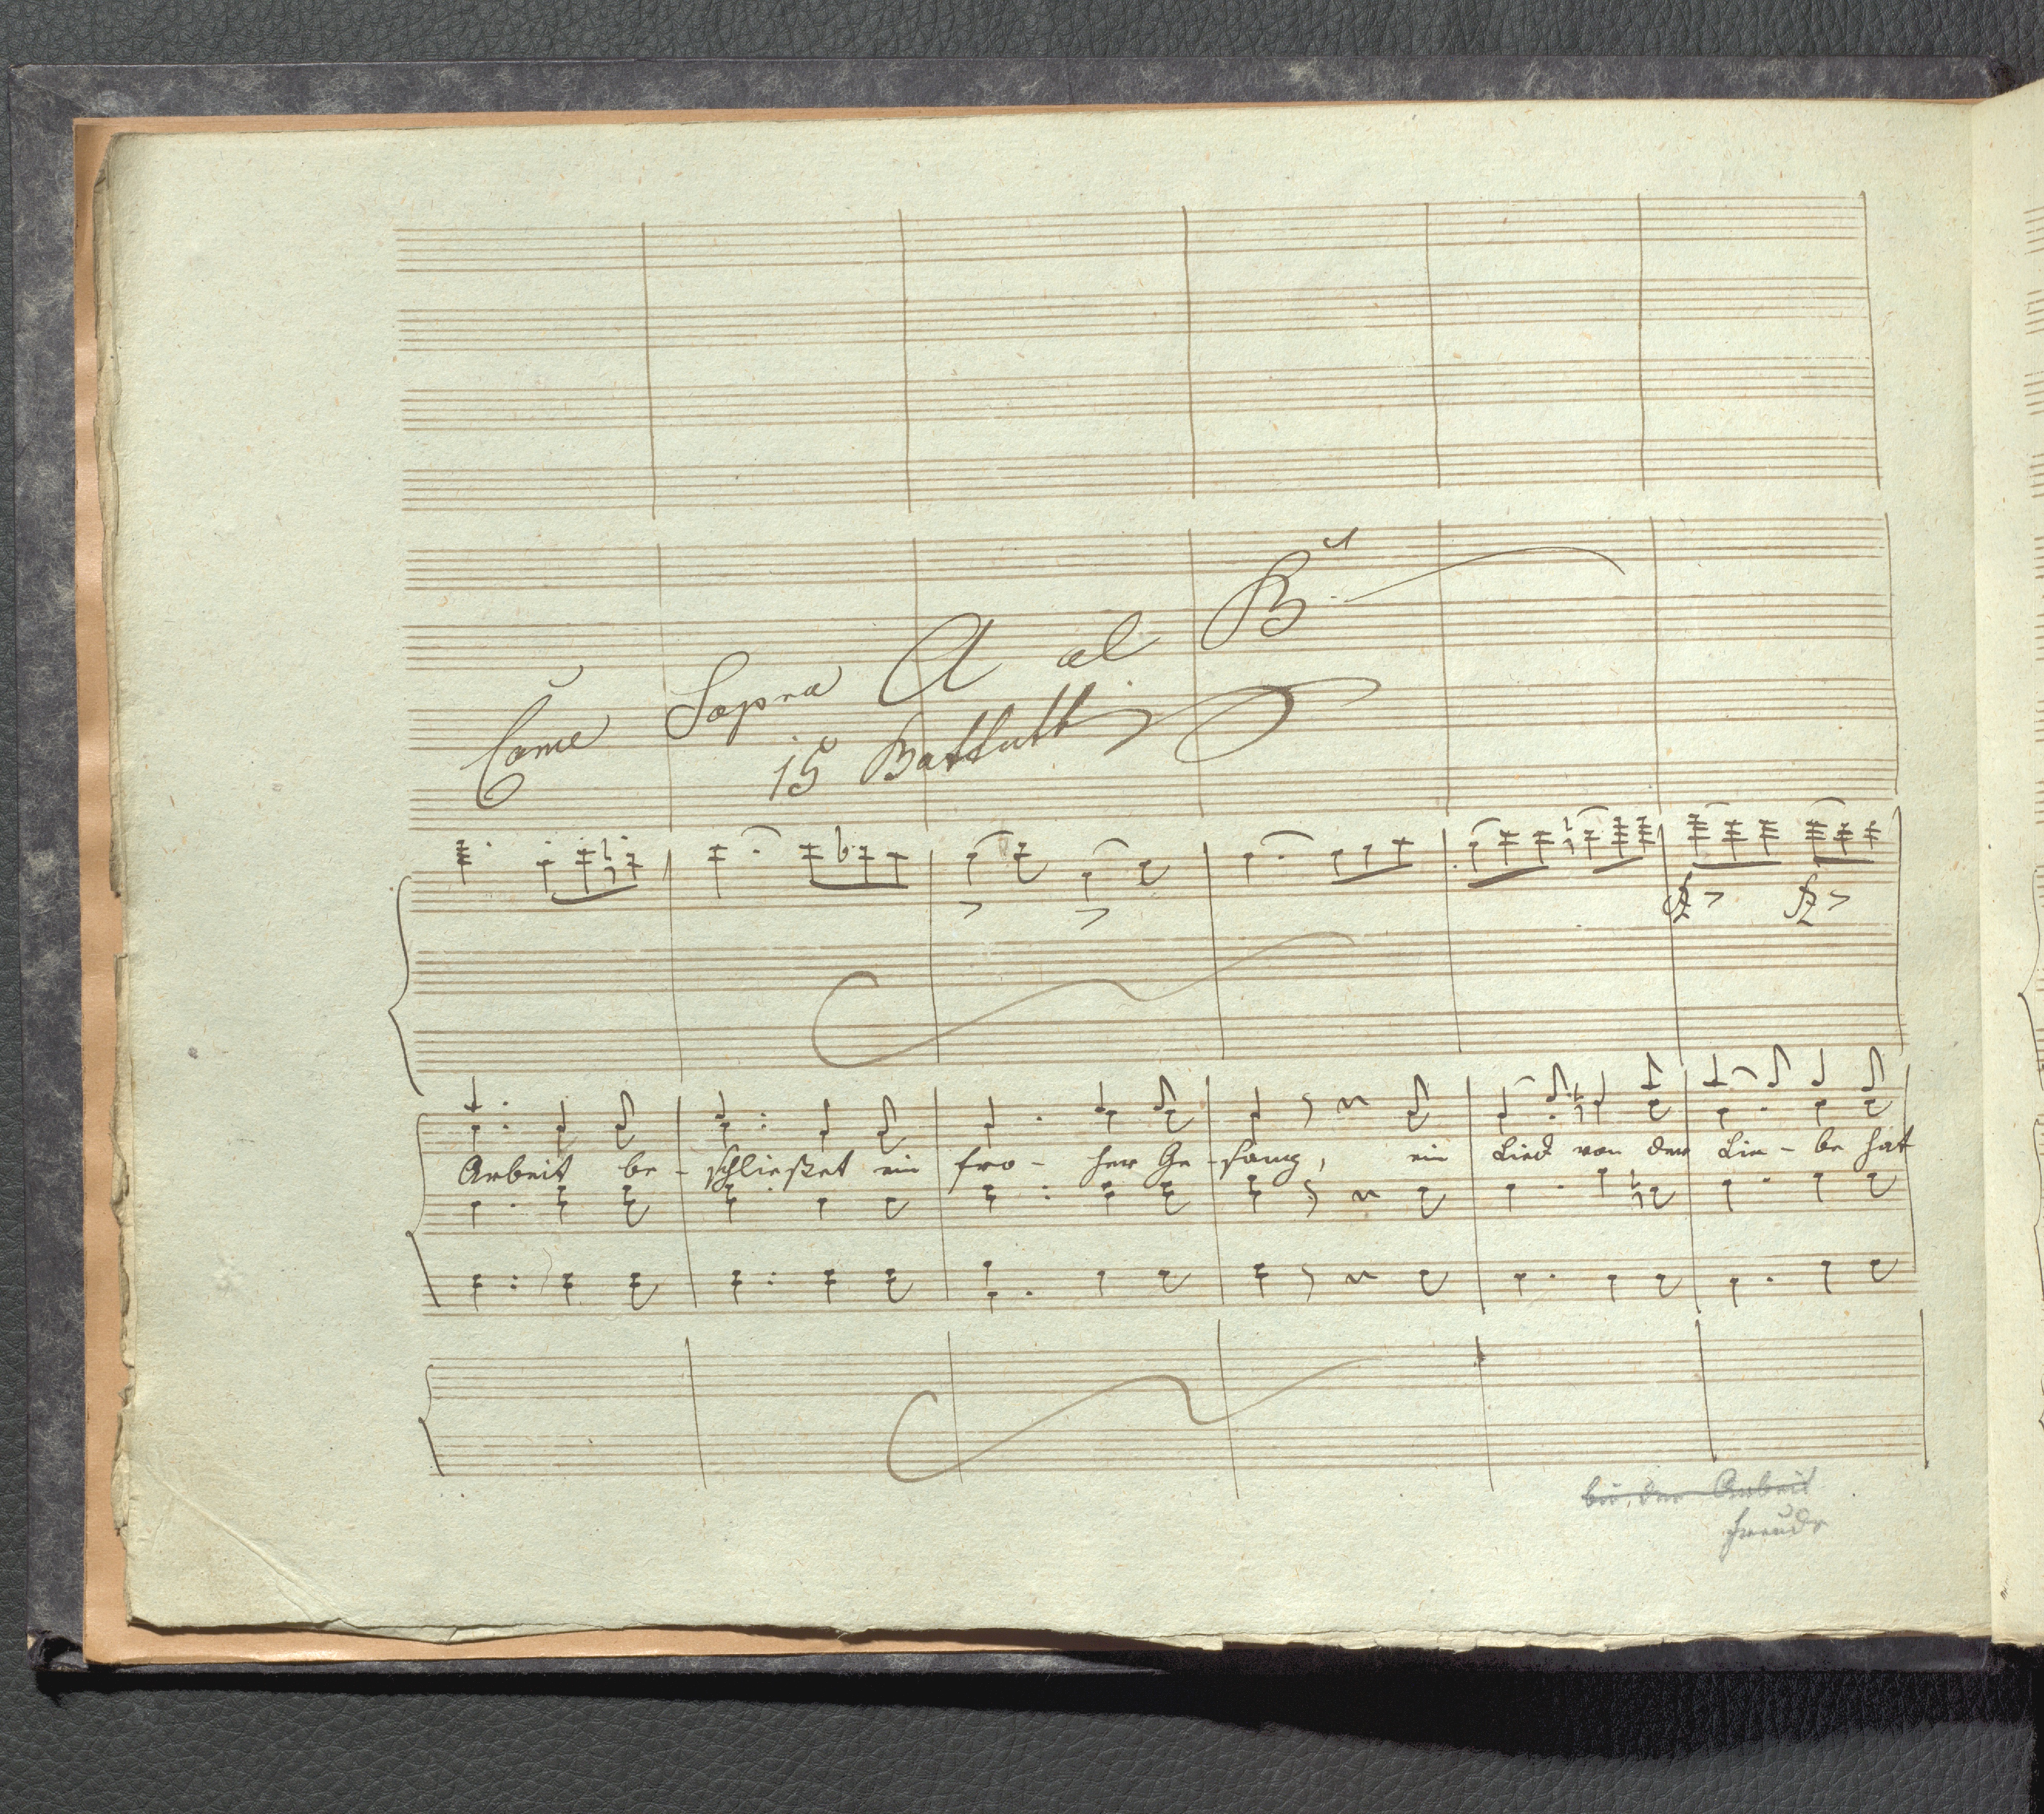 Come Sopra A al B.
15 Battutti
fz > fz >
Arbeit be - schließet ein fro - her Ge - sang, ein Lied von der Lie - be hat
bei der Arbeit
freude